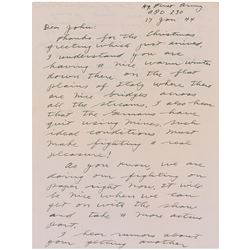 Hq First Army
APO 230
17 Jan 44
Dear John:
Thanks for the Christmas
greeting which just arrived.
I understand you are
having a nice warm winter
down there on the flat
plains of Italy where there
are nice bridges across
all the streams. I also hear
that the Germans have
quit using mines. Such
ideal conditions must
make fighting a real
pleasure!
As you know, we are
doing our fighting on
paper right now. It will
be nice when we can
get on with the show
and take a more active
part.
I hear rumors about
your getting another